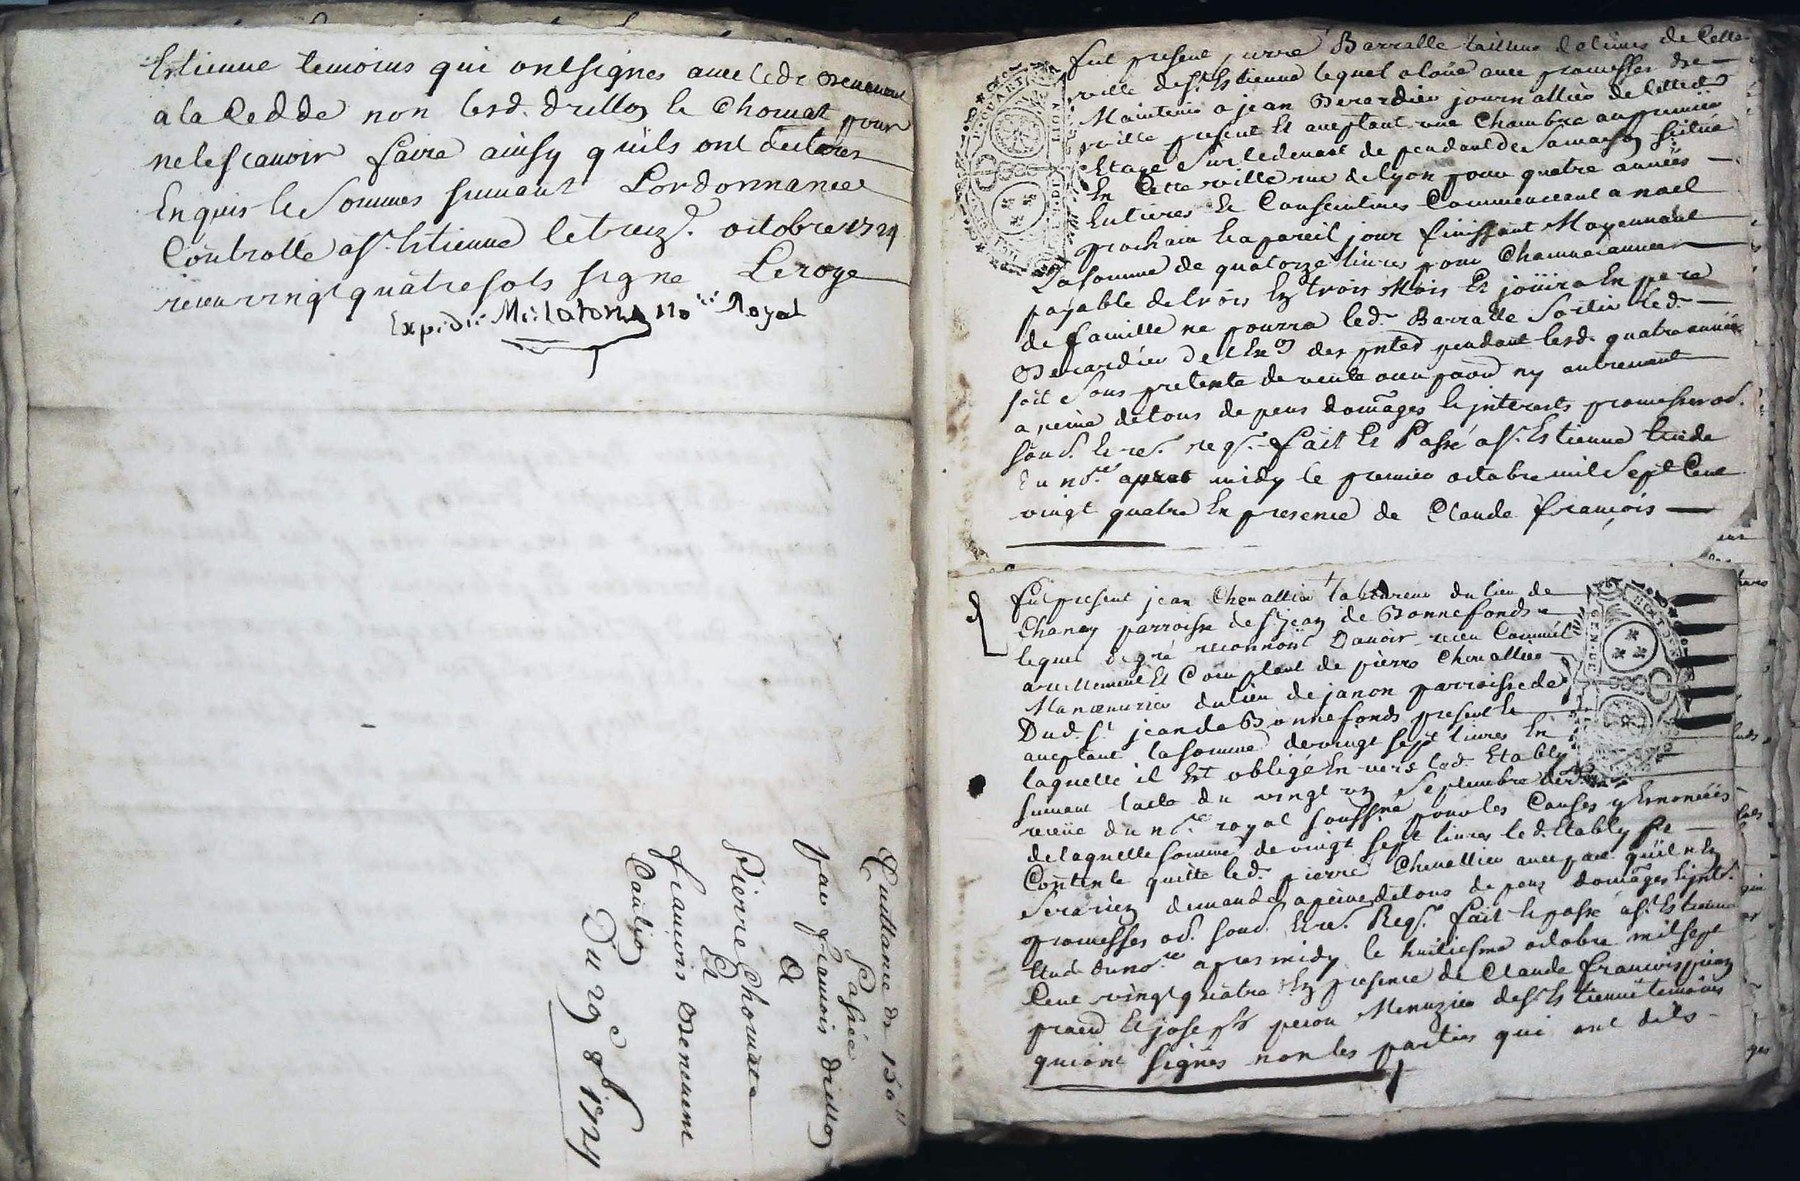 Estienne temoins qui ont signés avec led. Benevent
a la Cedde non lesd. drillon & Chomat pour
ne le scavoir faire ainsy quils ont declarés
Enquis & Sommés suivant Lordonnance
Controllé a st. Estienne le treiz.e octobre 1724
receu vingt quatre sols signé Leroye
Expedié no.re Royal
Quittance de 150 ll
Passée
par francois drillon
A
Pierre Chomat
Et
francois Benevent
Caution
Du 19e 8bre 1724
fut present pierre Barralle tailleur de limes de Cette
ville de st. Estienne lequel a loüé avec promesses de
Maintenir a jean Berardier journallier de cetted.
ville present Et acceptant une Chambre au premier
Etage Sur le devant de pendant de Sa maison Scitüé
En Cette ville rue de lyon pour quatre années
Entieres & Consecutives Commencent a noel
prochain & a pareil jour finissant Moyennant
La somme de quatorze livres pour Chacune année
payable de trois En trois Mois Et joüira En pere
de famille ne pourra led. Barralle Sortir led.
Berardier des pnted pendant lesd. quatre années
soit Sous pretexte de vente ny autrement
a peine de tous depens domages & jnterests promesses od.
soud. & re. req.n fait Et Passé a st. Estienne Etude
Du no.re apres midy le premier octobre mil Sept Cent
vingt quatre En presence de Claude françois
fut present jean Chevallier laboureur du lieu de
Chaney parroisse de st jean de Bonnefonds
lequel de gré reconnoit Davoir receu
actuellement Et Comptant de pierre Chevallier
Manoeuvrier du lieu de janon parroisse de
Dud. st. jean de Bonnefonds present &
acceptant la somme de vingt sept livres En
laquelle il Est obligé Envers led. Etably
suivant lacte du vingt un Septembre der.
receüe du no.re royal soussigné pour les Causes y Enoncées
de laquelle somme de vingt sept livres led. Etably se
Contente quitte led. pierre Chevallier avec pact quil nen
Sera rien demandé a peine de tous depens domages & jnt.
promesses od. soud. & re. Req.n fait & passé a st. Estienne
Etude du no.re apres midy le huitiesme octobre mil sept
Cent vingt quatre En presence de Claude francois
praud Et joseph peron Menuzier de st. Estienne temoins
qui ont signés non les parties qui ont dits